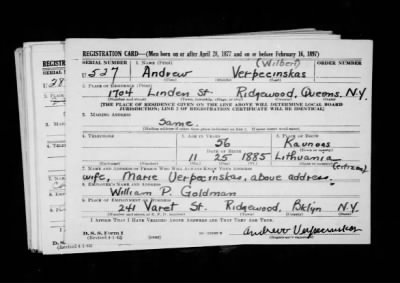 REGISTRATION CARD—(Men born on or after April 28, 1877 and on or before February 16, 1897)
SERIAL NUMBER 1. NAME (Print) (Wilbert)
U 527 Andrew Verpecinskas
(First) (Middle) (Last)
2. PLACE OF RESIDENCE (Print)
1704 Linden St. Ridgewood, Queens, N.Y.
(Number and street) (Town, township, village, or city) (County) (State)
[THE PLACE OF RESIDENCE GIVEN ON THE LINE ABOVE WILL DETERMINE LOCAL BOARD
JURISDICTION; LINE 2 OF REGISTRATION CERTIFICATE WILL BE IDENTICAL]
3. MAILING ADDRESS
Same.
4. TELEPHONE 5. AGE IN YEARS 6. PLACE OF BIRTH
56 Kaunas
DATE OF BIRTH
11 25 1885 Lithuania
(Mo.) (Day) (Yr.) (citizen)
7. NAME AND ADDRESS OF PERSON WHO WILL ALWAYS KNOW YOUR ADDRESS
wife, Marie Verpecinskas, above address
8. EMPLOYER'S NAME AND ADDRESS
William P. Goldman
9. PLACE OF EMPLOYMENT OR BUSINESS
241 Varet St. Ridgewood, Bklyn N.Y.
I AFFIRM THAT I HAVE VERIFIED ABOVE ANSWERS AND THAT THEY ARE TRUE.
D. S. S. Form 1
(Revised 4-1-42)
Andrew Verpecinskas